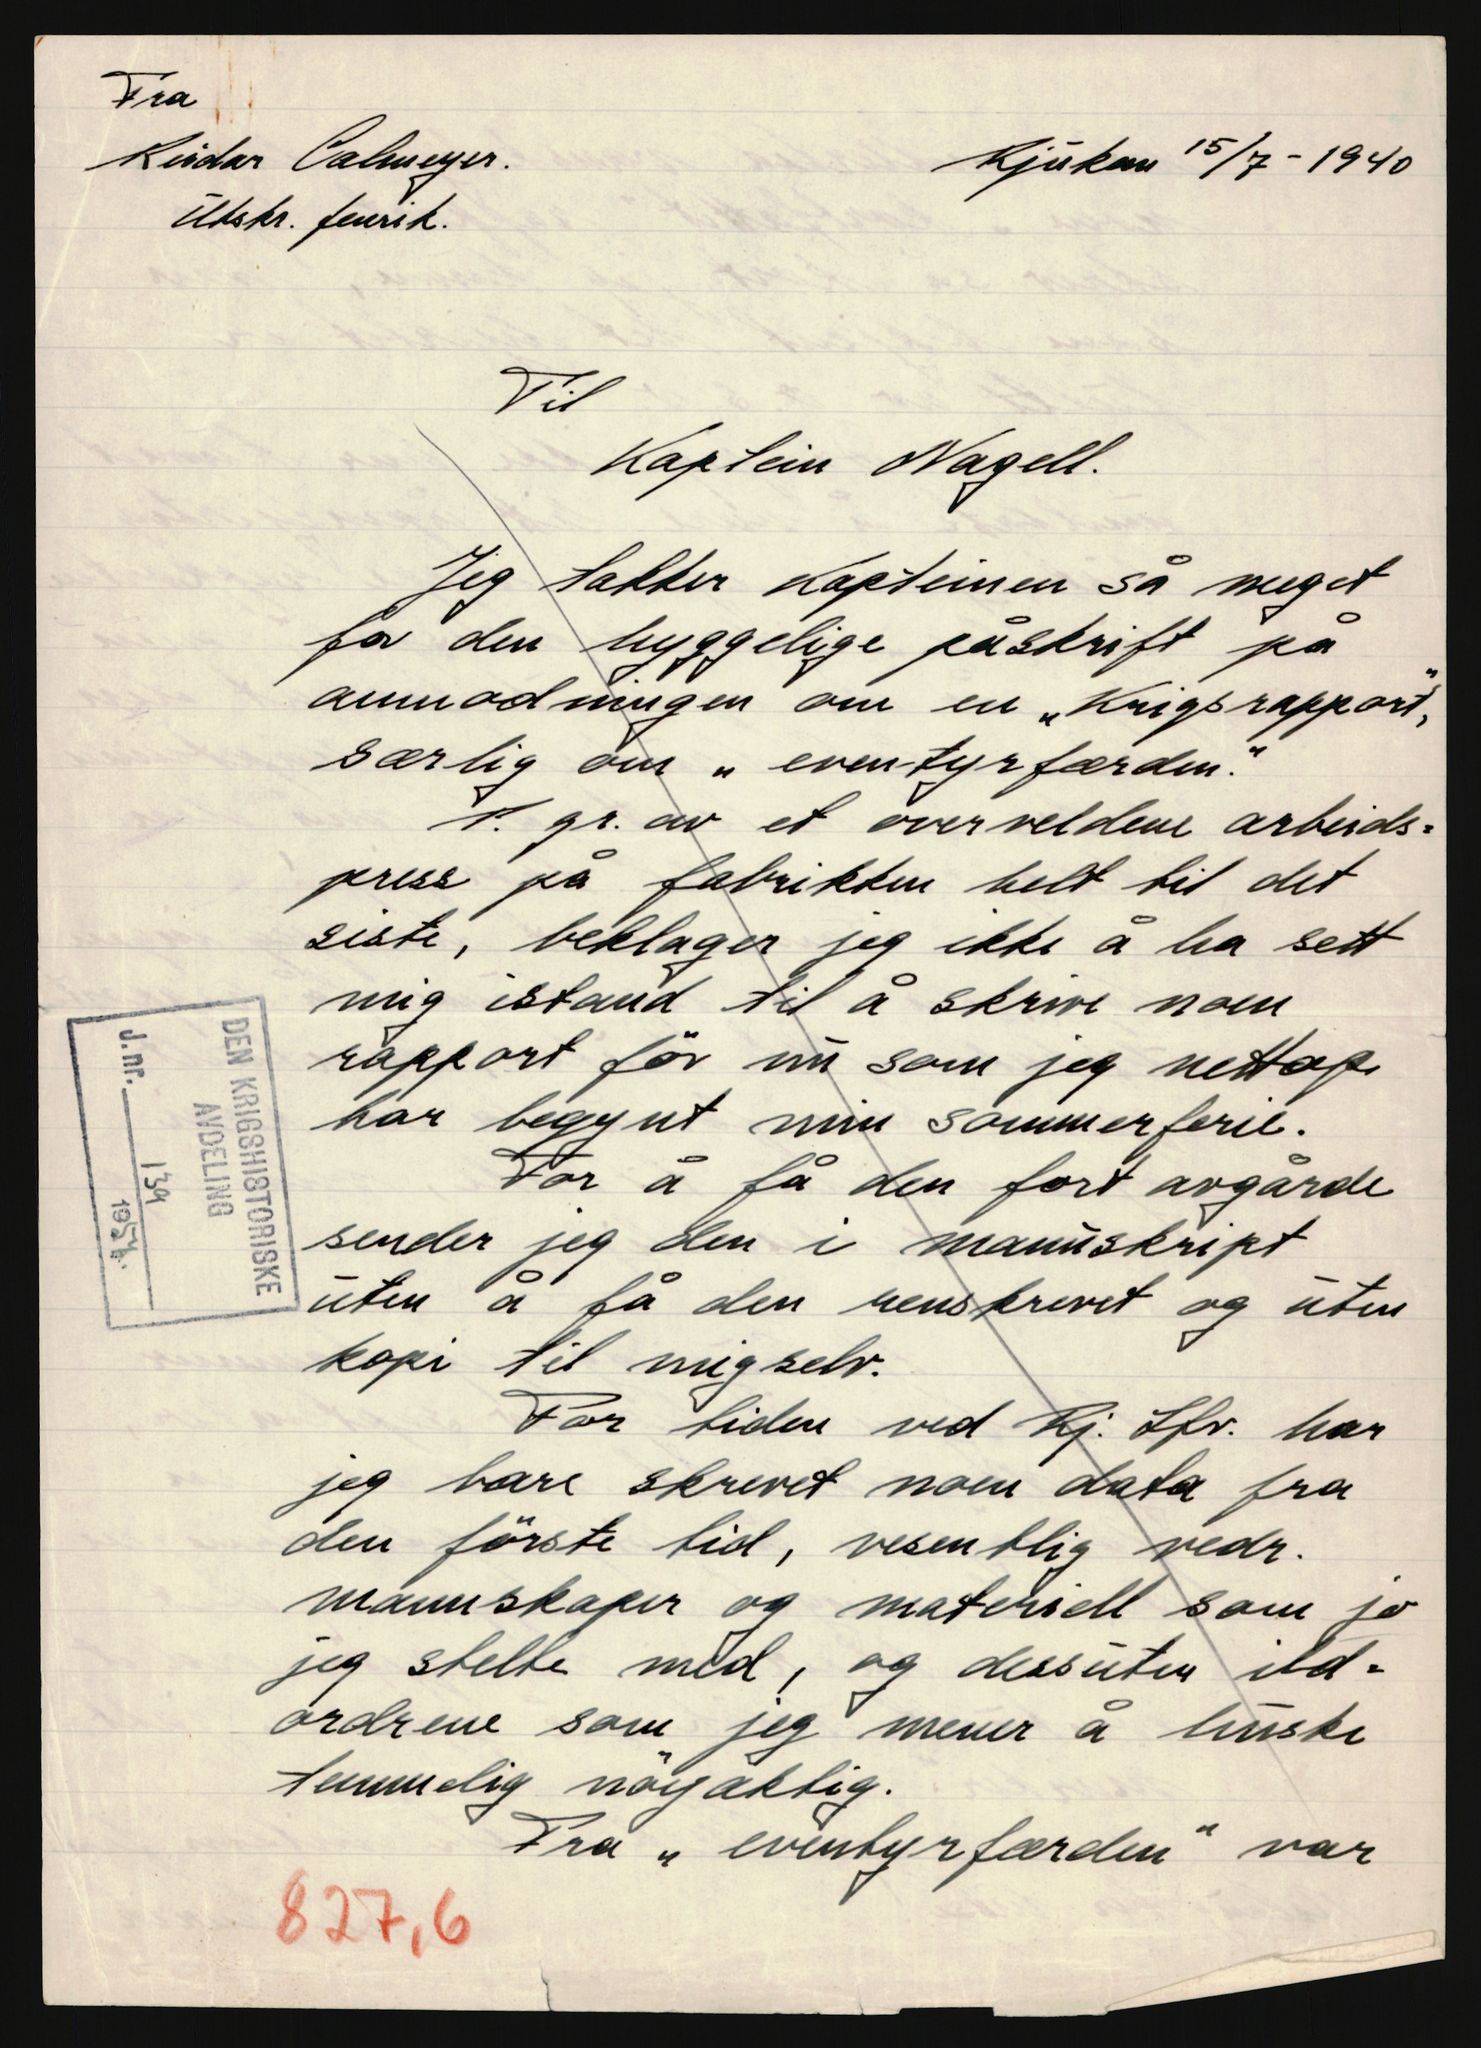 Fra
Reidar Calmeyer.
Utskr. fenrik.
Rjukan 15/7 - 1940
Til
Kaptein Nagell.
Jeg takker kapteinen så meget
for den hyggelige påskrift på
anmodningen om en „Krigsrapport",
særlig om „eventyrfærden".
P. gr. av et overveldene arbeids=
press på fabrikken helt til det
siste, beklager jeg ikke å ha sett
mig istand til å skrive noen
rapport før nu som jeg nettop
har begynt min sommerferie.
For å få den fort avgårde
sender jeg den i manuskript
uten å få den renskrevet og uten
kopi til migselv.
For tiden ved Rj. Lfv. har
jeg bare skrevet noen data fra
den første tid, vesentlig vedr.
mannskaper og materiell som jo
jeg stelte med, og dessuten ild=
ordrene som jeg mener å huske
temmelig nøyaktig.
Fra „eventyrfærden" var
DEN KRIGSHISTORISKE
AVDELING
J. nr. 139 1954.
827,6